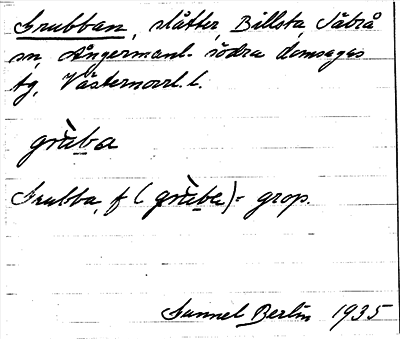 Grubban, slåtter, Billsta, Säbrå
sn, Ångermanl. södra domsagas
tg, Västernorrl. l.
grùba
Grubba, f (grùba) = grop.
Gunnel Berlin 1935